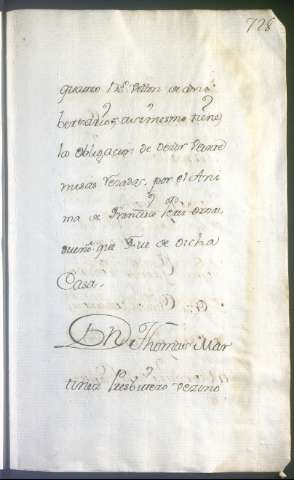 728
quatro Rs. Vellon de dino
bersarios asimesmo tiene
la obligacion de dezir Veinte
misas rezadas, por el Ani
ma de Francisco
dueño que fue de dicha
Casa.
Dn Thomas Mar
tinez Presbitero vezino